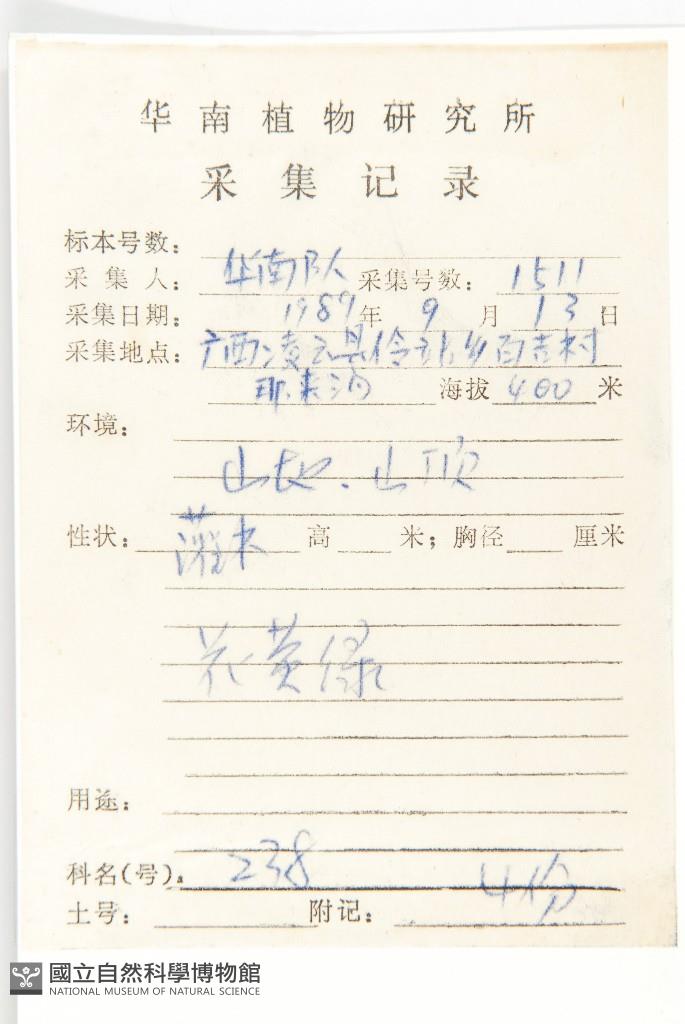 华南植物研究所
采集记录
标本号数:
采集人: 华南队 采集号数: 1511
采集日期: 1989年9月13日
采集地点: 广西凌云县伶站乡百吉村
海拔 400 米
环境:
山地.山顶
性状: 灌木 高 米; 胸径 厘米
花黄绿
用途:
科名(号): 238 4份
土号: 附记:
國立自然科學博物館
NATIONAL MUSEUM OF NATURAL SCIENCE